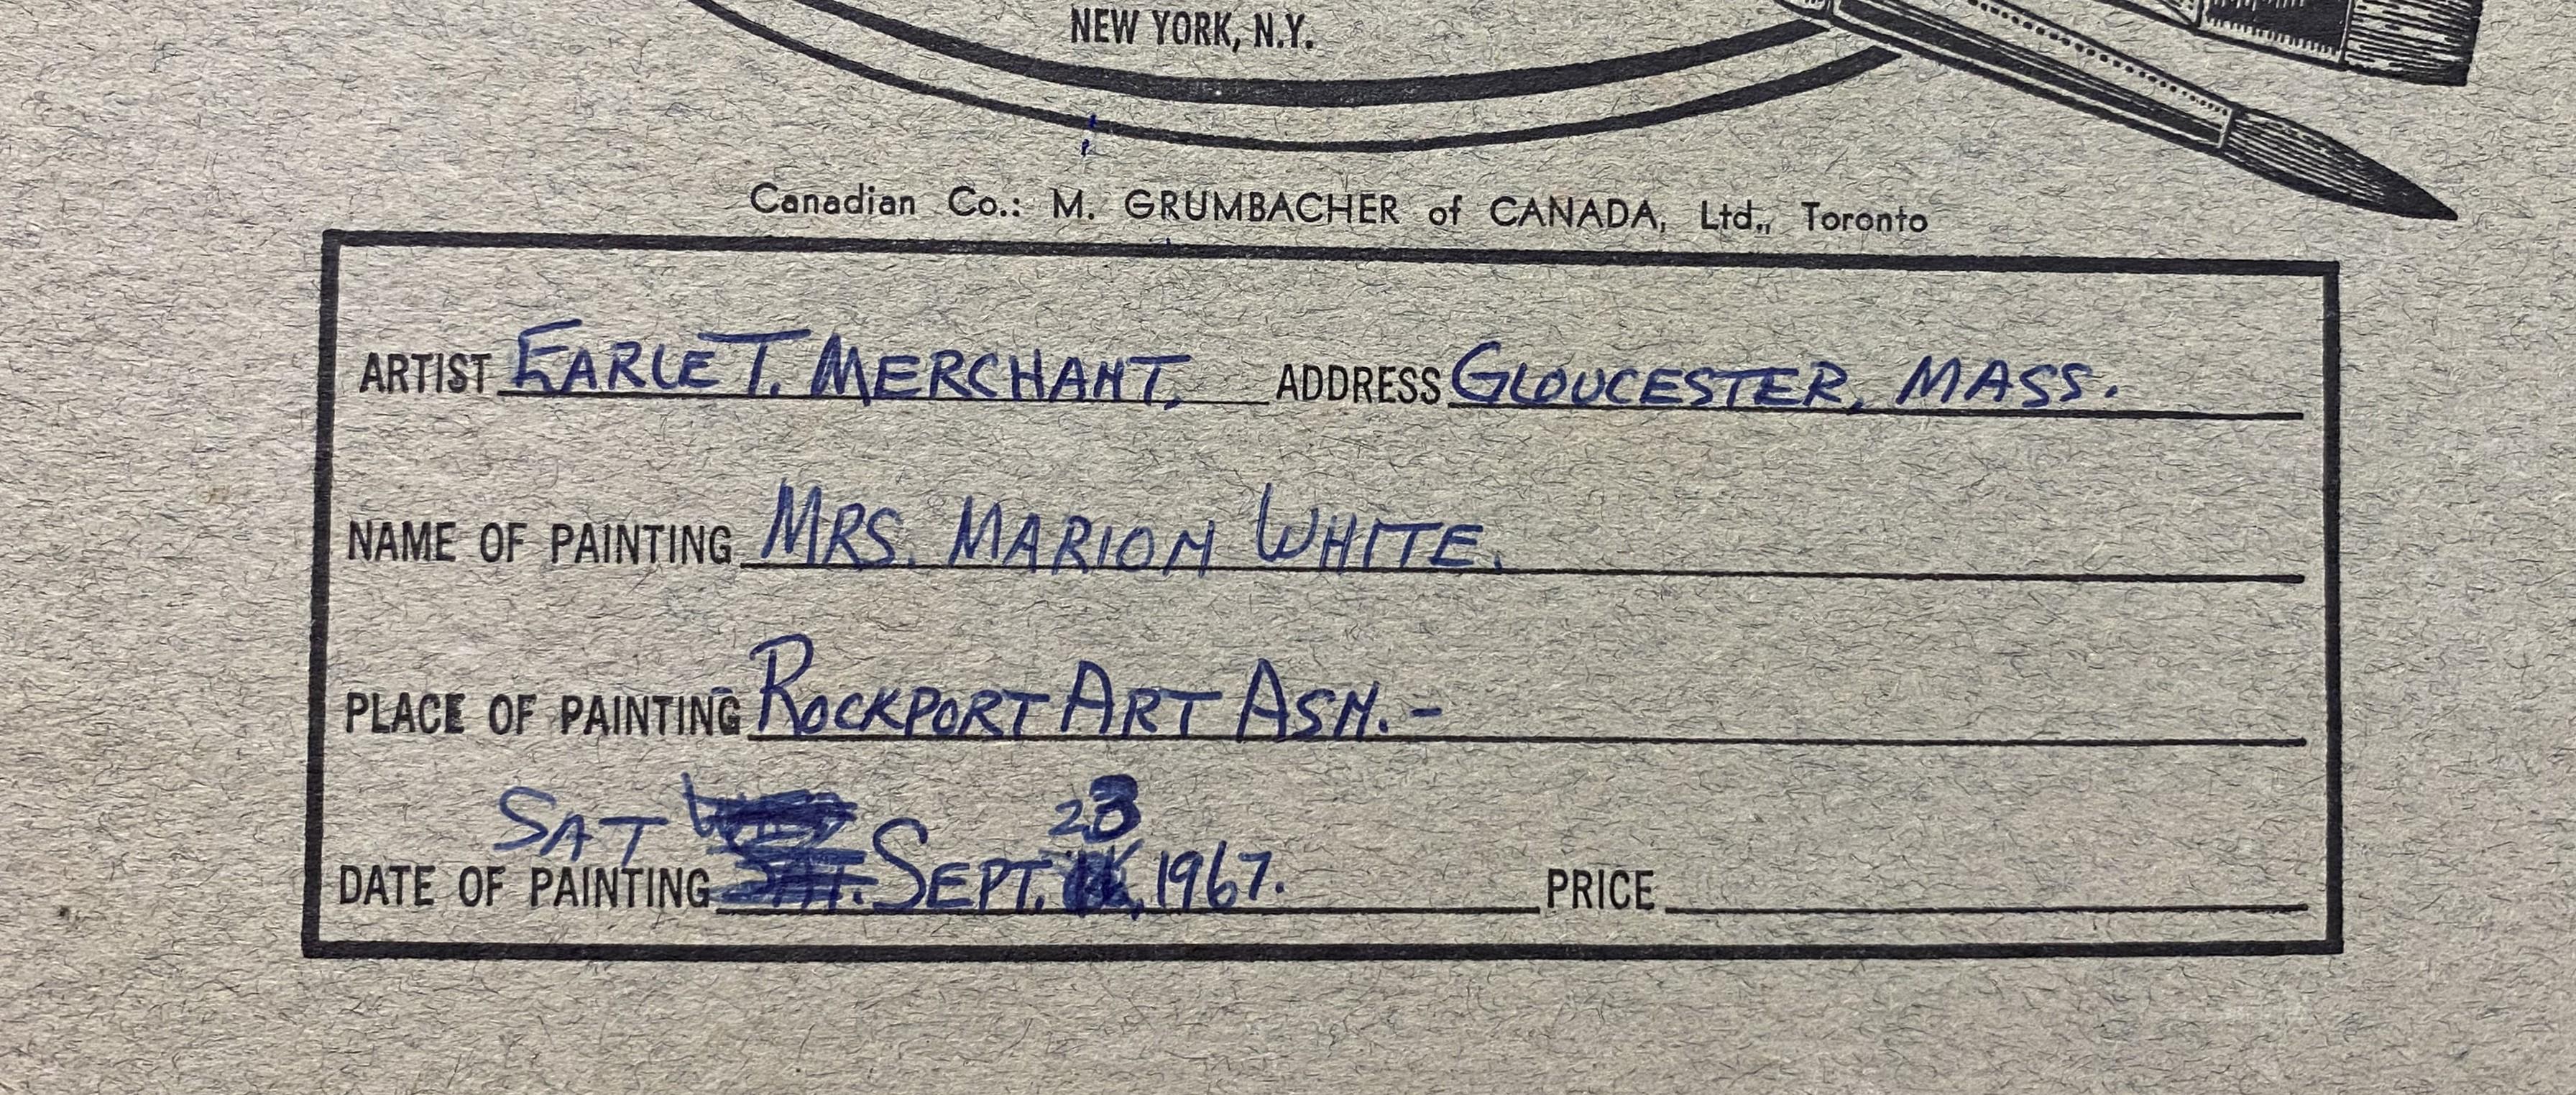 NEW YORK, N.Y.
Canadian Co.: M. GRUMBACHER of CANADA, Ltd., Toronto
ARTIST EARLE T. MERCHANT, ADDRESS GLOUCESTER, MASS.
NAME OF PAINTING MRS. MARION WHITE.
PLACE OF PAINTING ROCKPORT ART ASN. -
SAT 23
DATE OF PAINTING SAT. SEPT. , 1967. PRICE